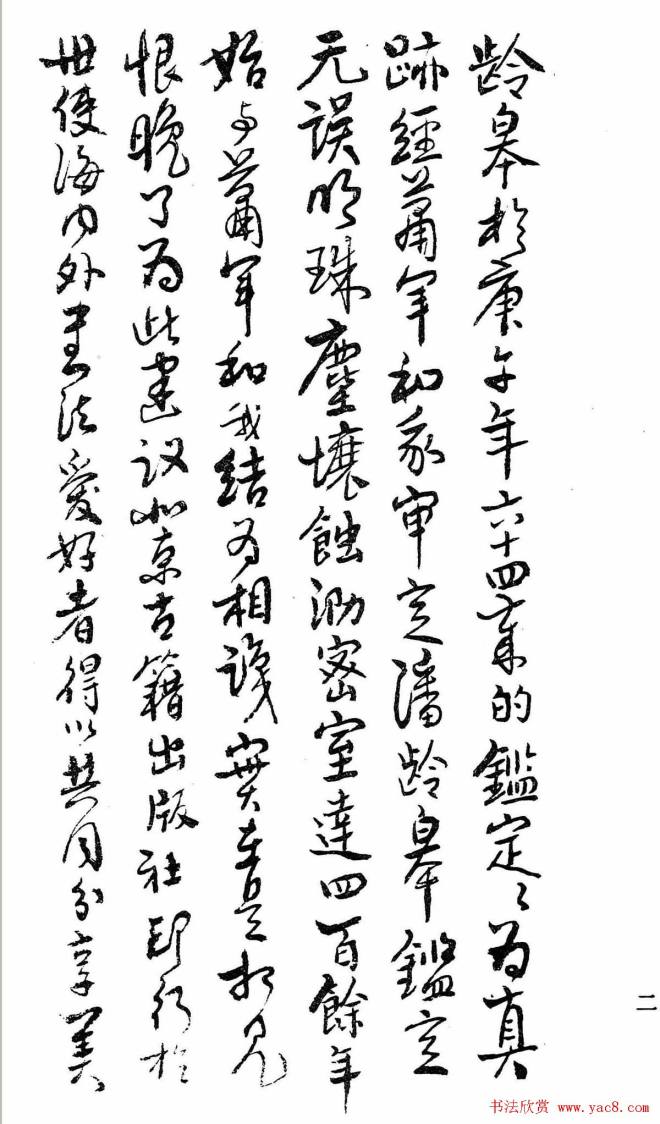 龄皋於庚午年六十四岁的鑑定定为真
跡經萧军和我审定潘龄皋鑑定
无误明珠塵壤蝕泐密室達四百餘年
始与萧军和我结为相識实在是相見
恨晚了为此建议北京古籍出版社印行於
世使海内外书法爱好者得以共同分享美
二
书法欣赏 www.yac8.com